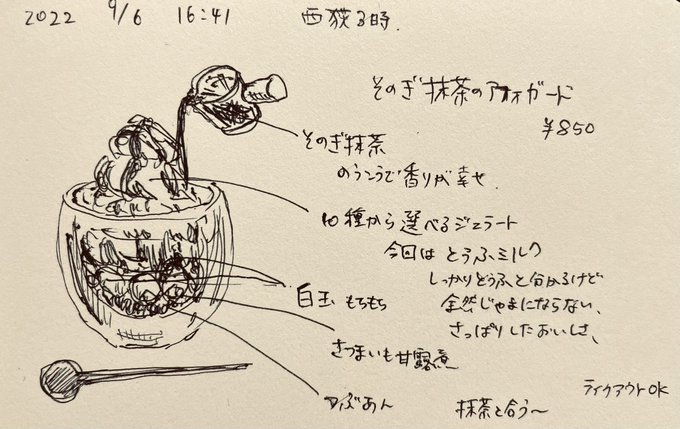 2022 9/6 16:41 西荻3時.
そのぎ抹茶のアフォガード
¥850
そのぎ抹茶
のうこうで香りが幸せ.
10種から選べるジェラート
今回は とうふミルク
しっかりどうふと分かるけど
全然じゃまにならない、
さっぱりしたおいしさ、
白玉 もちもち
さつまいも甘露煮
つぶあん
抹茶と合う〜
テイクアウトOK